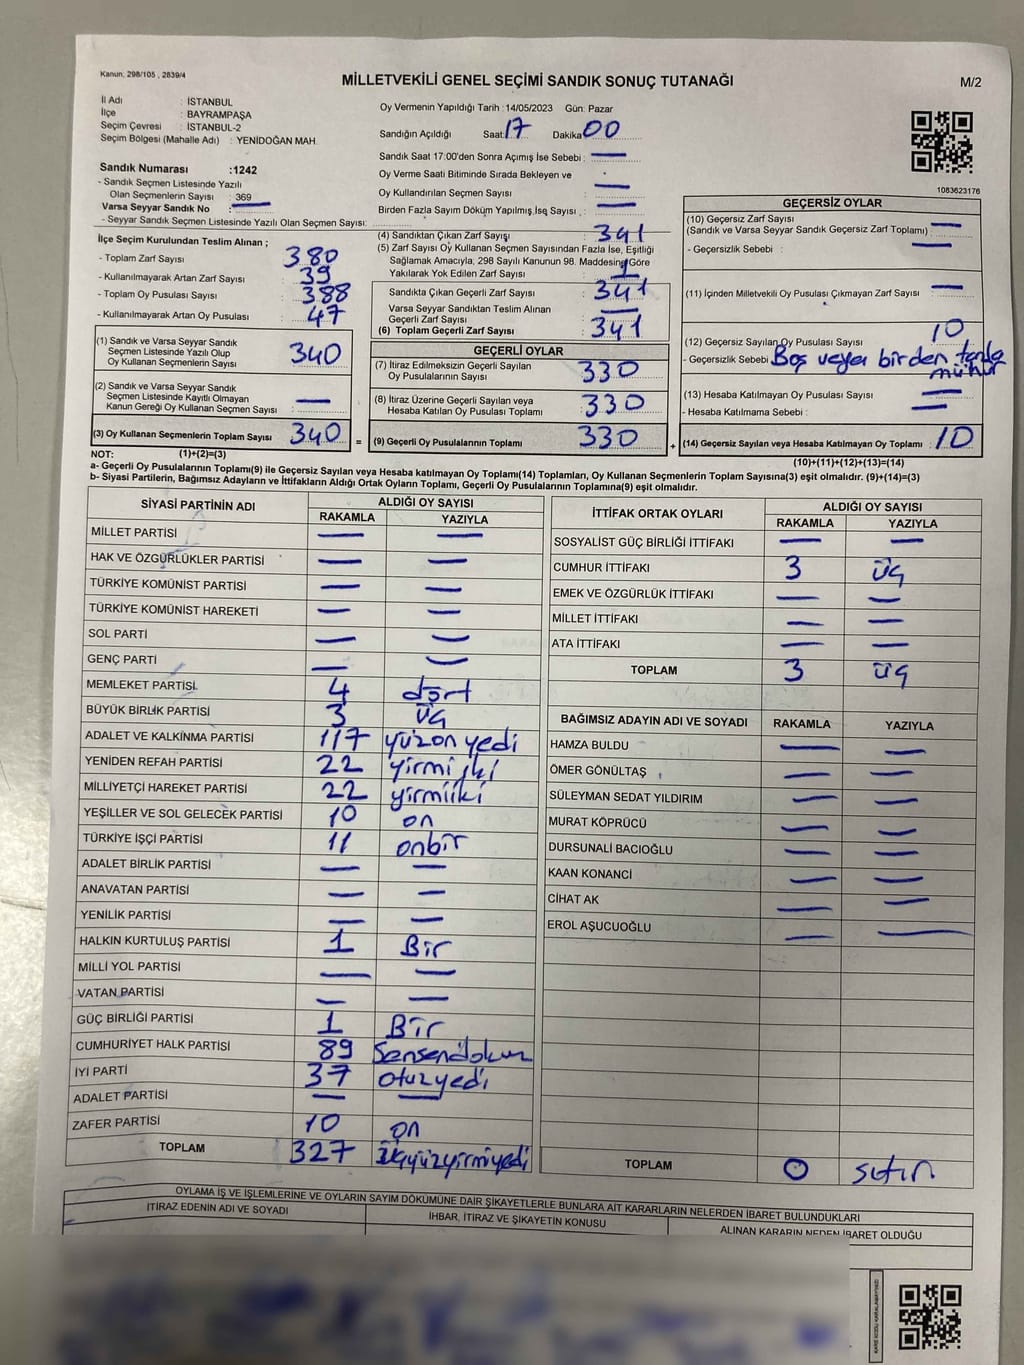 Kanun, 298/105 , 2839/4
MİLLETVEKİLİ GENEL SEÇİMİ SANDIK SONUÇ TUTANAĞI
M/2
İl Adı : İSTANBUL
İlçe : BAYRAMPAŞA
Seçim Çevresi : İSTANBUL-2
Seçim Bölgesi (Mahalle Adı) : YENİDOĞAN MAH.
Sandık Numarası :1242
- Sandık Seçmen Listesinde Yazılı
Olan Seçmenlerin Sayısı : 369
Varsa Seyyar Sandık No : —
- Seyyar Sandık Seçmen Listesinde Yazılı Olan Seçmen Sayısı:
Oy Vermenin Yapıldığı Tarih : 14/05/2023 Gün: Pazar
Sandığın Açıldığı Saat: 17 Dakika 00
Sandık Saat 17:00'den Sonra Açımış İse Sebebi : —
Oy Verme Saati Bitiminde Sırada Bekleyen ve
Oy Kullandırılan Seçmen Sayısı —
Birden Fazla Sayım Döküm Yapılmış İse Sayısı : —
1083623176
İlçe Seçim Kurulundan Teslim Alınan ;
- Toplam Zarf Sayısı : 380
- Kullanılmayarak Artan Zarf Sayısı : 39
- Toplam Oy Pusulası Sayısı : 388
- Kullanılmayarak Artan Oy Pusulası : 47
(1) Sandık ve Varsa Seyyar Sandık
Seçmen Listesinde Yazılı Olup
Oy Kullanan Seçmenlerin Sayısı : 340
(2) Sandık ve Varsa Seyyar Sandık
Seçmen Listesinde Kayıtlı Olmayan
Kanun Gereği Oy Kullanan Seçmen Sayısı : —
(3) Oy Kullanan Seçmenlerin Toplam Sayısı 340 =
(4) Sandıktan Çıkan Zarf Sayısı : 341
(5) Zarf Sayısı Oy Kullanan Seçmen Sayısından Fazla İse, Eşitliği
Sağlamak Amacıyla, 298 Sayılı Kanunun 98. Maddesine Göre
Yakılarak Yok Edilen Zarf Sayısı : 1
Sandıkta Çıkan Geçerli Zarf Sayısı : 341
Varsa Seyyar Sandıktan Teslim Alınan
Geçerli Zarf Sayısı : —
(6) Toplam Geçerli Zarf Sayısı : 341
GEÇERLİ OYLAR
(7) İtiraz Edilmeksizin Geçerli Sayılan
Oy Pusulalarının Sayısı : 330
(8) İtiraz Üzerine Geçerli Sayılan veya
Hesaba Katılan Oy Pusulası Toplamı : 330
(9) Geçerli Oy Pusulalarının Toplamı : 330 +
GEÇERSİZ OYLAR
(10) Geçersiz Zarf Sayısı
(Sandık ve Varsa Seyyar Sandık Geçersiz Zarf Toplamı) : —
- Geçersizlik Sebebi : —
(11) İçinden Milletvekili Oy Pusulası Çıkmayan Zarf Sayısı : —
(12) Geçersiz Sayılan Oy Pusulası Sayısı : 10
- Geçersizlik Sebebi : Boş veya birden fazla
mühür
(13) Hesaba Katılmayan Oy Pusulası Sayısı : —
- Hesaba Katılmama Sebebi : —
(14) Geçersiz Sayılan veya Hesaba Katılmayan Oy Toplamı : 10
NOT: (1)+(2)=(3)
(10)+(11)+(12)+(13)=(14)
a- Geçerli Oy Pusulalarının Toplamı(9) ile Geçersiz Sayılan veya Hesaba katılmayan Oy Toplamı(14) Toplamları, Oy Kullanan Seçmenlerin Toplam Sayısına(3) eşit olmalıdır. (9)+(14)=(3)
b- Siyasi Partilerin, Bağımsız Adayların ve İttifakların Aldığı Ortak Oyların Toplamı, Geçerli Oy Pusulalarının Toplamına(9) eşit olmalıdır.
SİYASİ PARTİNİN ADI ALDIĞI OY SAYISI
RAKAMLA YAZIYLA
MİLLET PARTİSİ — —
HAK VE ÖZGÜRLÜKLER PARTİSİ — —
TÜRKİYE KOMÜNİST PARTİSİ — —
TÜRKİYE KOMÜNİST HAREKETİ — —
SOL PARTİ — —
GENÇ PARTİ — —
MEMLEKET PARTİSİ 4 dört
BÜYÜK BİRLİK PARTİSİ 3 üç
ADALET VE KALKINMA PARTİSİ 117 yüzonyedi
YENİDEN REFAH PARTİSİ 22 yirmiiki
MİLLİYETÇİ HAREKET PARTİSİ 22 yirmiiki
YEŞİLLER VE SOL GELECEK PARTİSİ 10 on
TÜRKİYE İŞÇİ PARTİSİ 11 onbir
ADALET BİRLİK PARTİSİ — —
ANAVATAN PARTİSİ — —
YENİLİK PARTİSİ — —
HALKIN KURTULUŞ PARTİSİ 1 Bir
MİLLİ YOL PARTİSİ — —
VATAN PARTİSİ — —
GÜÇ BİRLİĞİ PARTİSİ 1 Bir
CUMHURİYET HALK PARTİSİ 89 Sensendokuz
İYİ PARTİ 37 otuzyedi
ADALET PARTİSİ — —
ZAFER PARTİSİ 10 on
TOPLAM 327 üçyüzyirmiyedi
İTTİFAK ORTAK OYLARI ALDIĞI OY SAYISI
RAKAMLA YAZIYLA
SOSYALİST GÜÇ BİRLİĞİ İTTİFAKI — —
CUMHUR İTTİFAKI 3 üç
EMEK VE ÖZGÜRLÜK İTTİFAKI — —
MİLLET İTTİFAKI — —
ATA İTTİFAKI — —
TOPLAM 3 üç
BAĞIMSIZ ADAYIN ADI VE SOYADI RAKAMLA YAZIYLA
HAMZA BULDU — —
ÖMER GÖNÜLTAŞ — —
SÜLEYMAN SEDAT YILDIRIM — —
MURAT KÖPRÜCÜ — —
DURSUNALİ BACIOĞLU — —
KAAN KONANCİ — —
CİHAT AK — —
EROL AŞUCUOĞLU — —
TOPLAM 0 sıfır
OYLAMA İŞ VE İŞLEMLERİNE VE OYLARIN SAYIM DÖKÜMÜNE DAİR ŞİKAYETLERLE BUNLARA AİT KARARLARIN NELERDEN İBARET BULUNDUKLARI
İTİRAZ EDENİN ADI VE SOYADI
İHBAR, İTİRAZ VE ŞİKAYETİN KONUSU
ALINAN KARARIN NEDEN İBARET OLDUĞU
KARE KODU KARALAMAYINIZ!